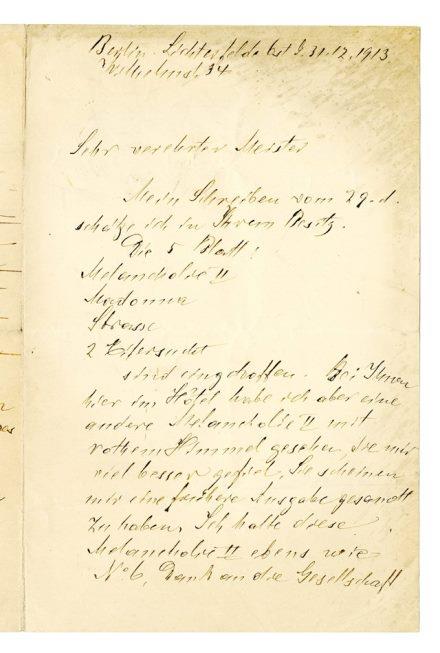 Berlin-Lichterfelde Ost d. 31.12.1913
Wilhelmst. 34
Sehr verehrter Meister
Mein Schreiben vom 29. d.
schätze ich in Ihrem Besitz.
Die 5 Blatt:
Melancholie II
Madonna
Strasse
2 Eifersucht
sind eingetroffen. Bei Ihnen
hier im Hôtel habe ich aber eine
andere Melancholie II mit
rothem Himmel gesehen, die mir
viel besser gefiel. Sie scheinen
mir eine frühere Ausgabe gesandt
zu haben. Ich halte diese
Melancholie II ebens wie
No 6, Dank an die Gesellschaft